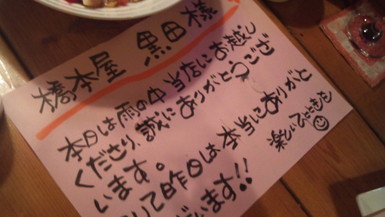 橋本屋 黒田様
本日は雨の中当店にお越し
くださり、誠にありがとうござ
います。
そして昨日は本当にありがと
ございます!!
楽しんで